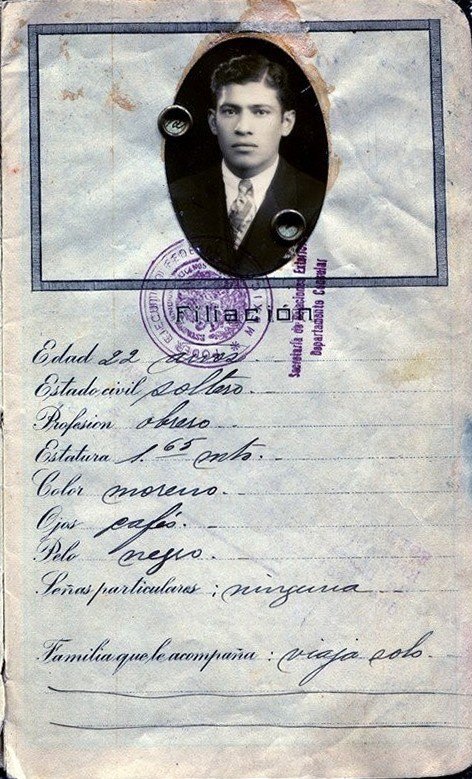 Filiación
Secretaría de Relaciones Exteriores
Departamento Consular
MEXICO
Edad 22 años.
Estado civil soltero.
Profesion obrero
Estatura 1.65 mts.
Color moreno.
Ojos cafés.
Pelo negro.
Señas particulares: ninguna
Familia que le acompaña: viaja solo.